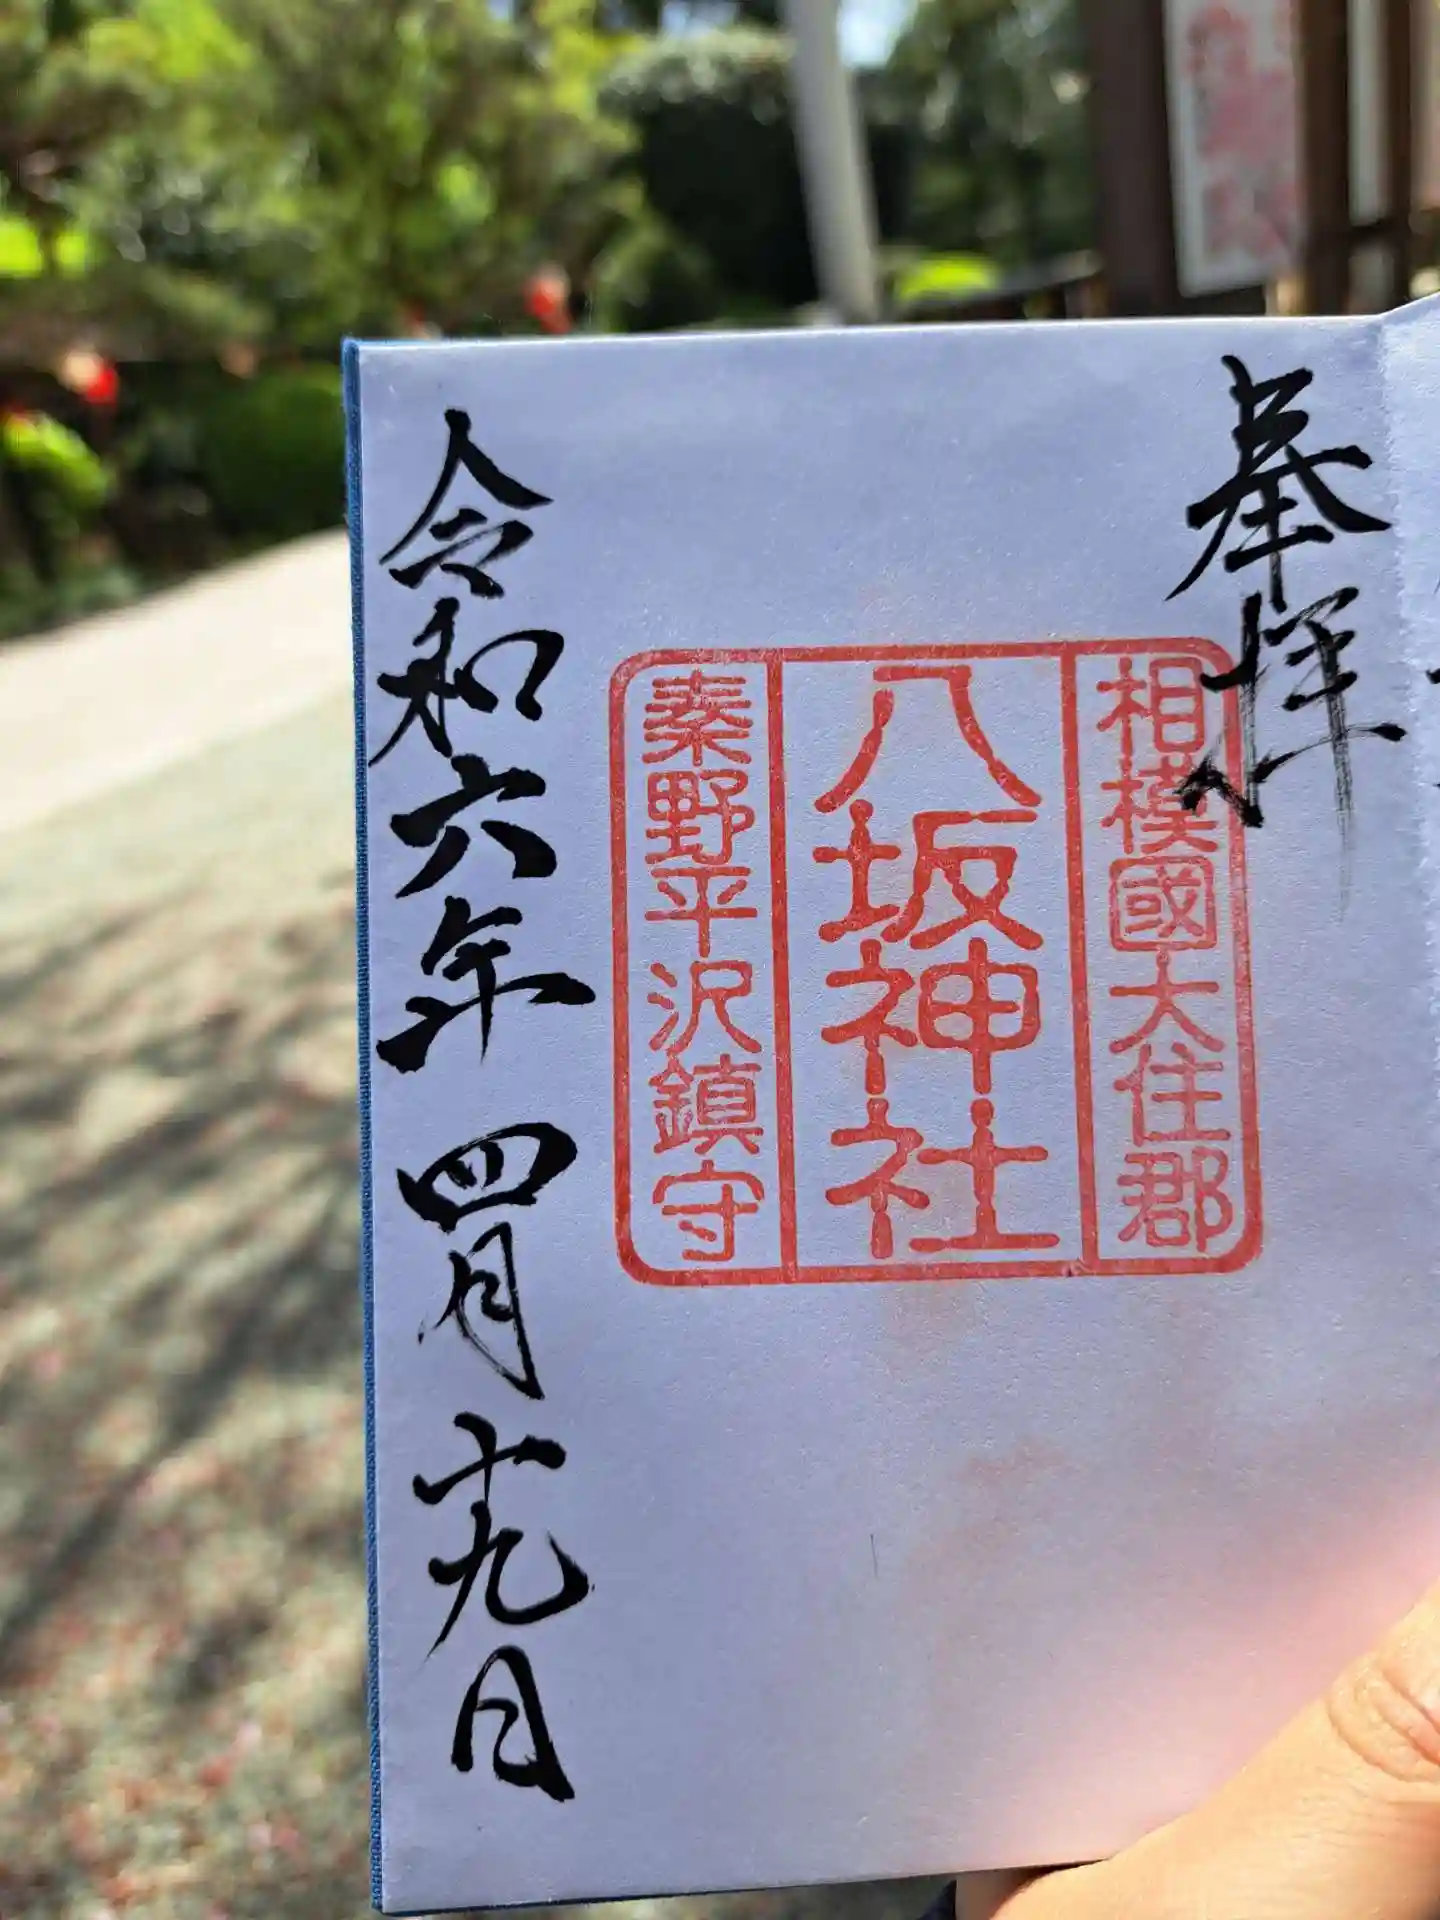 奉拝
相模國大住郡
八坂神社
秦野平沢鎮守
令和六年四月十九日